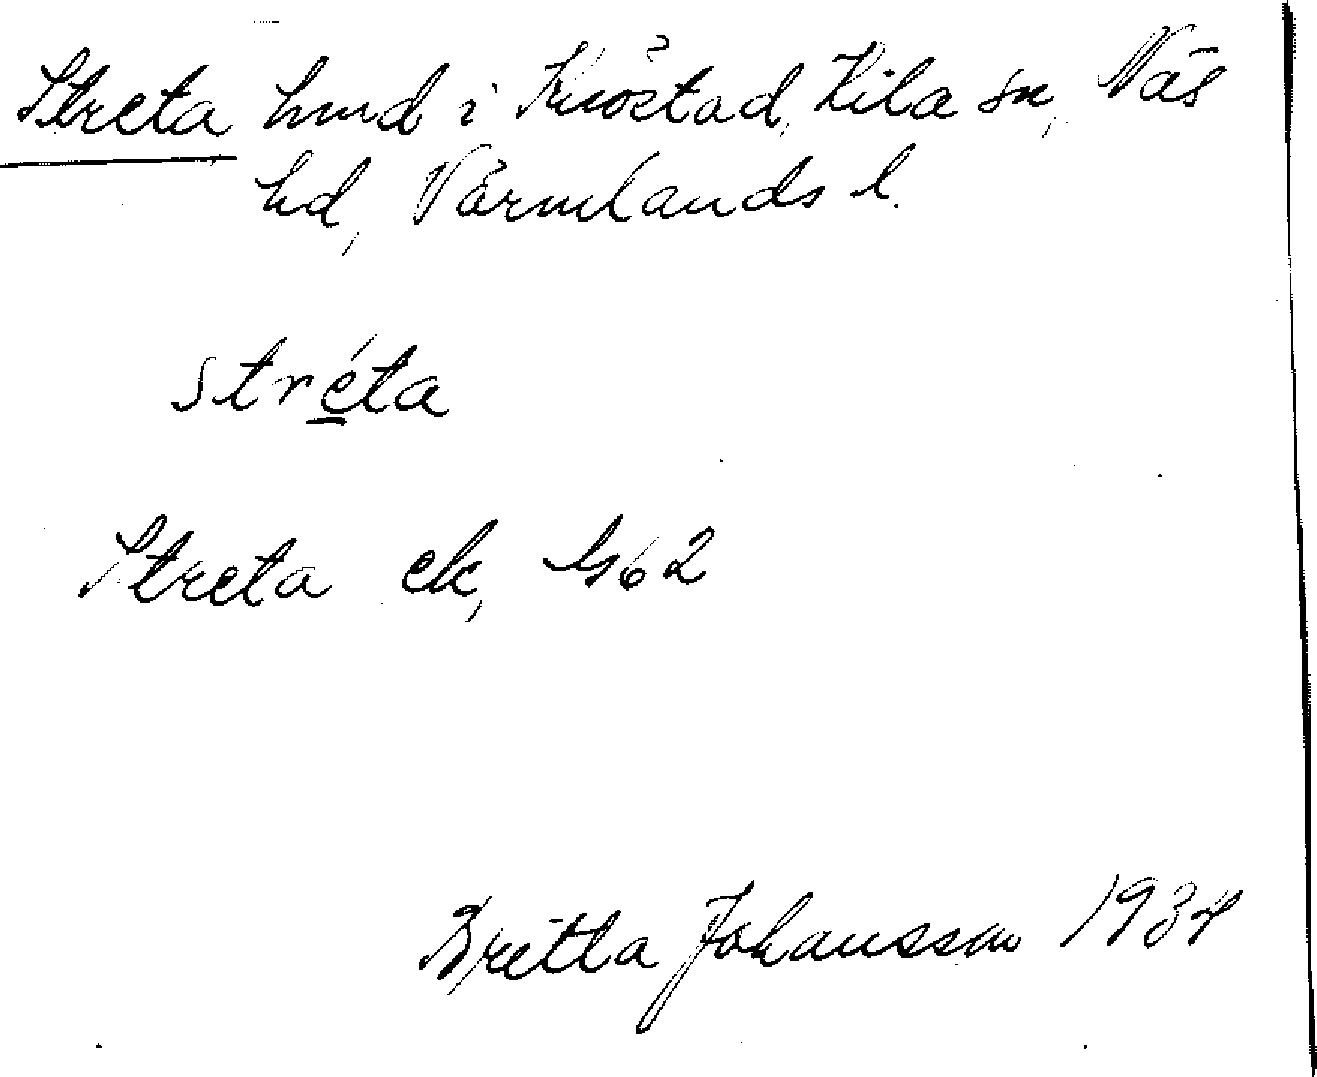 Streta hmd i Knöstad, Kila sn, Näs
hd, Värmlands l.
stréta
Streta ek, 1/4 62
Britta Johansson 1934